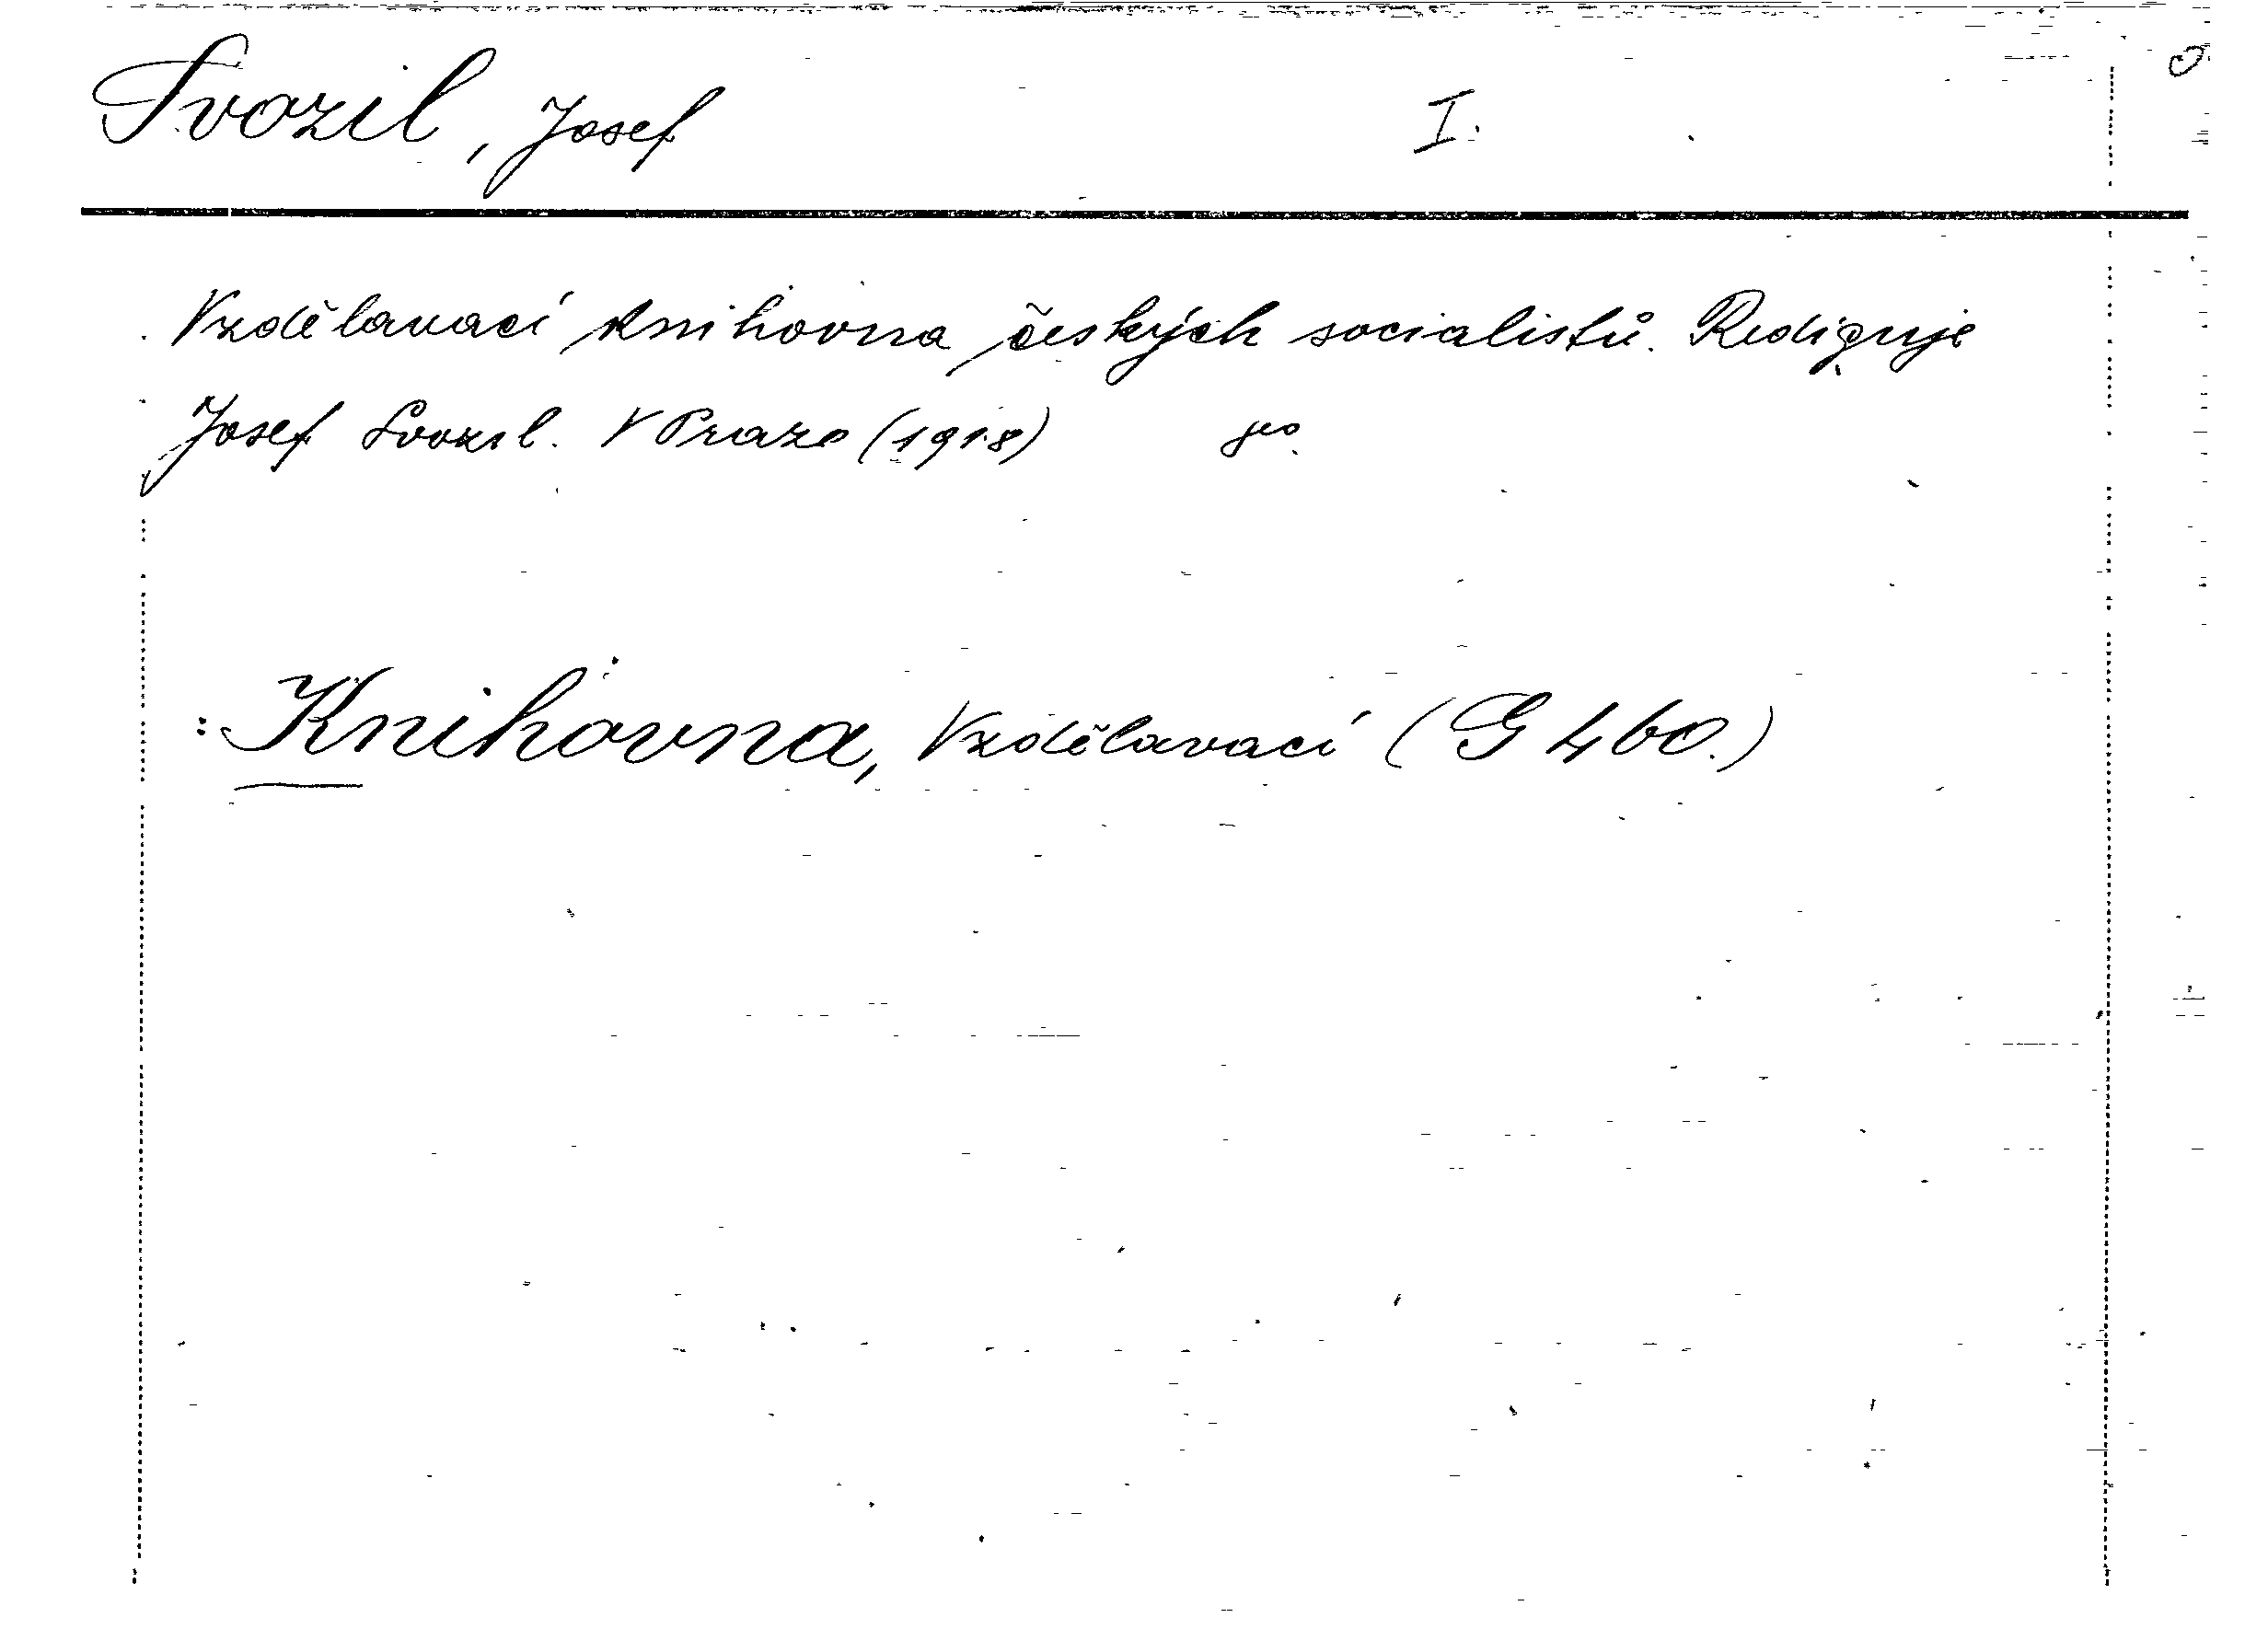 Svozil, Josef I.
Vzdělavací knihovna českých socialistů. Rediguje
Josef Svozil. V Praze (1918) 8o.
: Knihovna, Vzdělavací (G 460.)